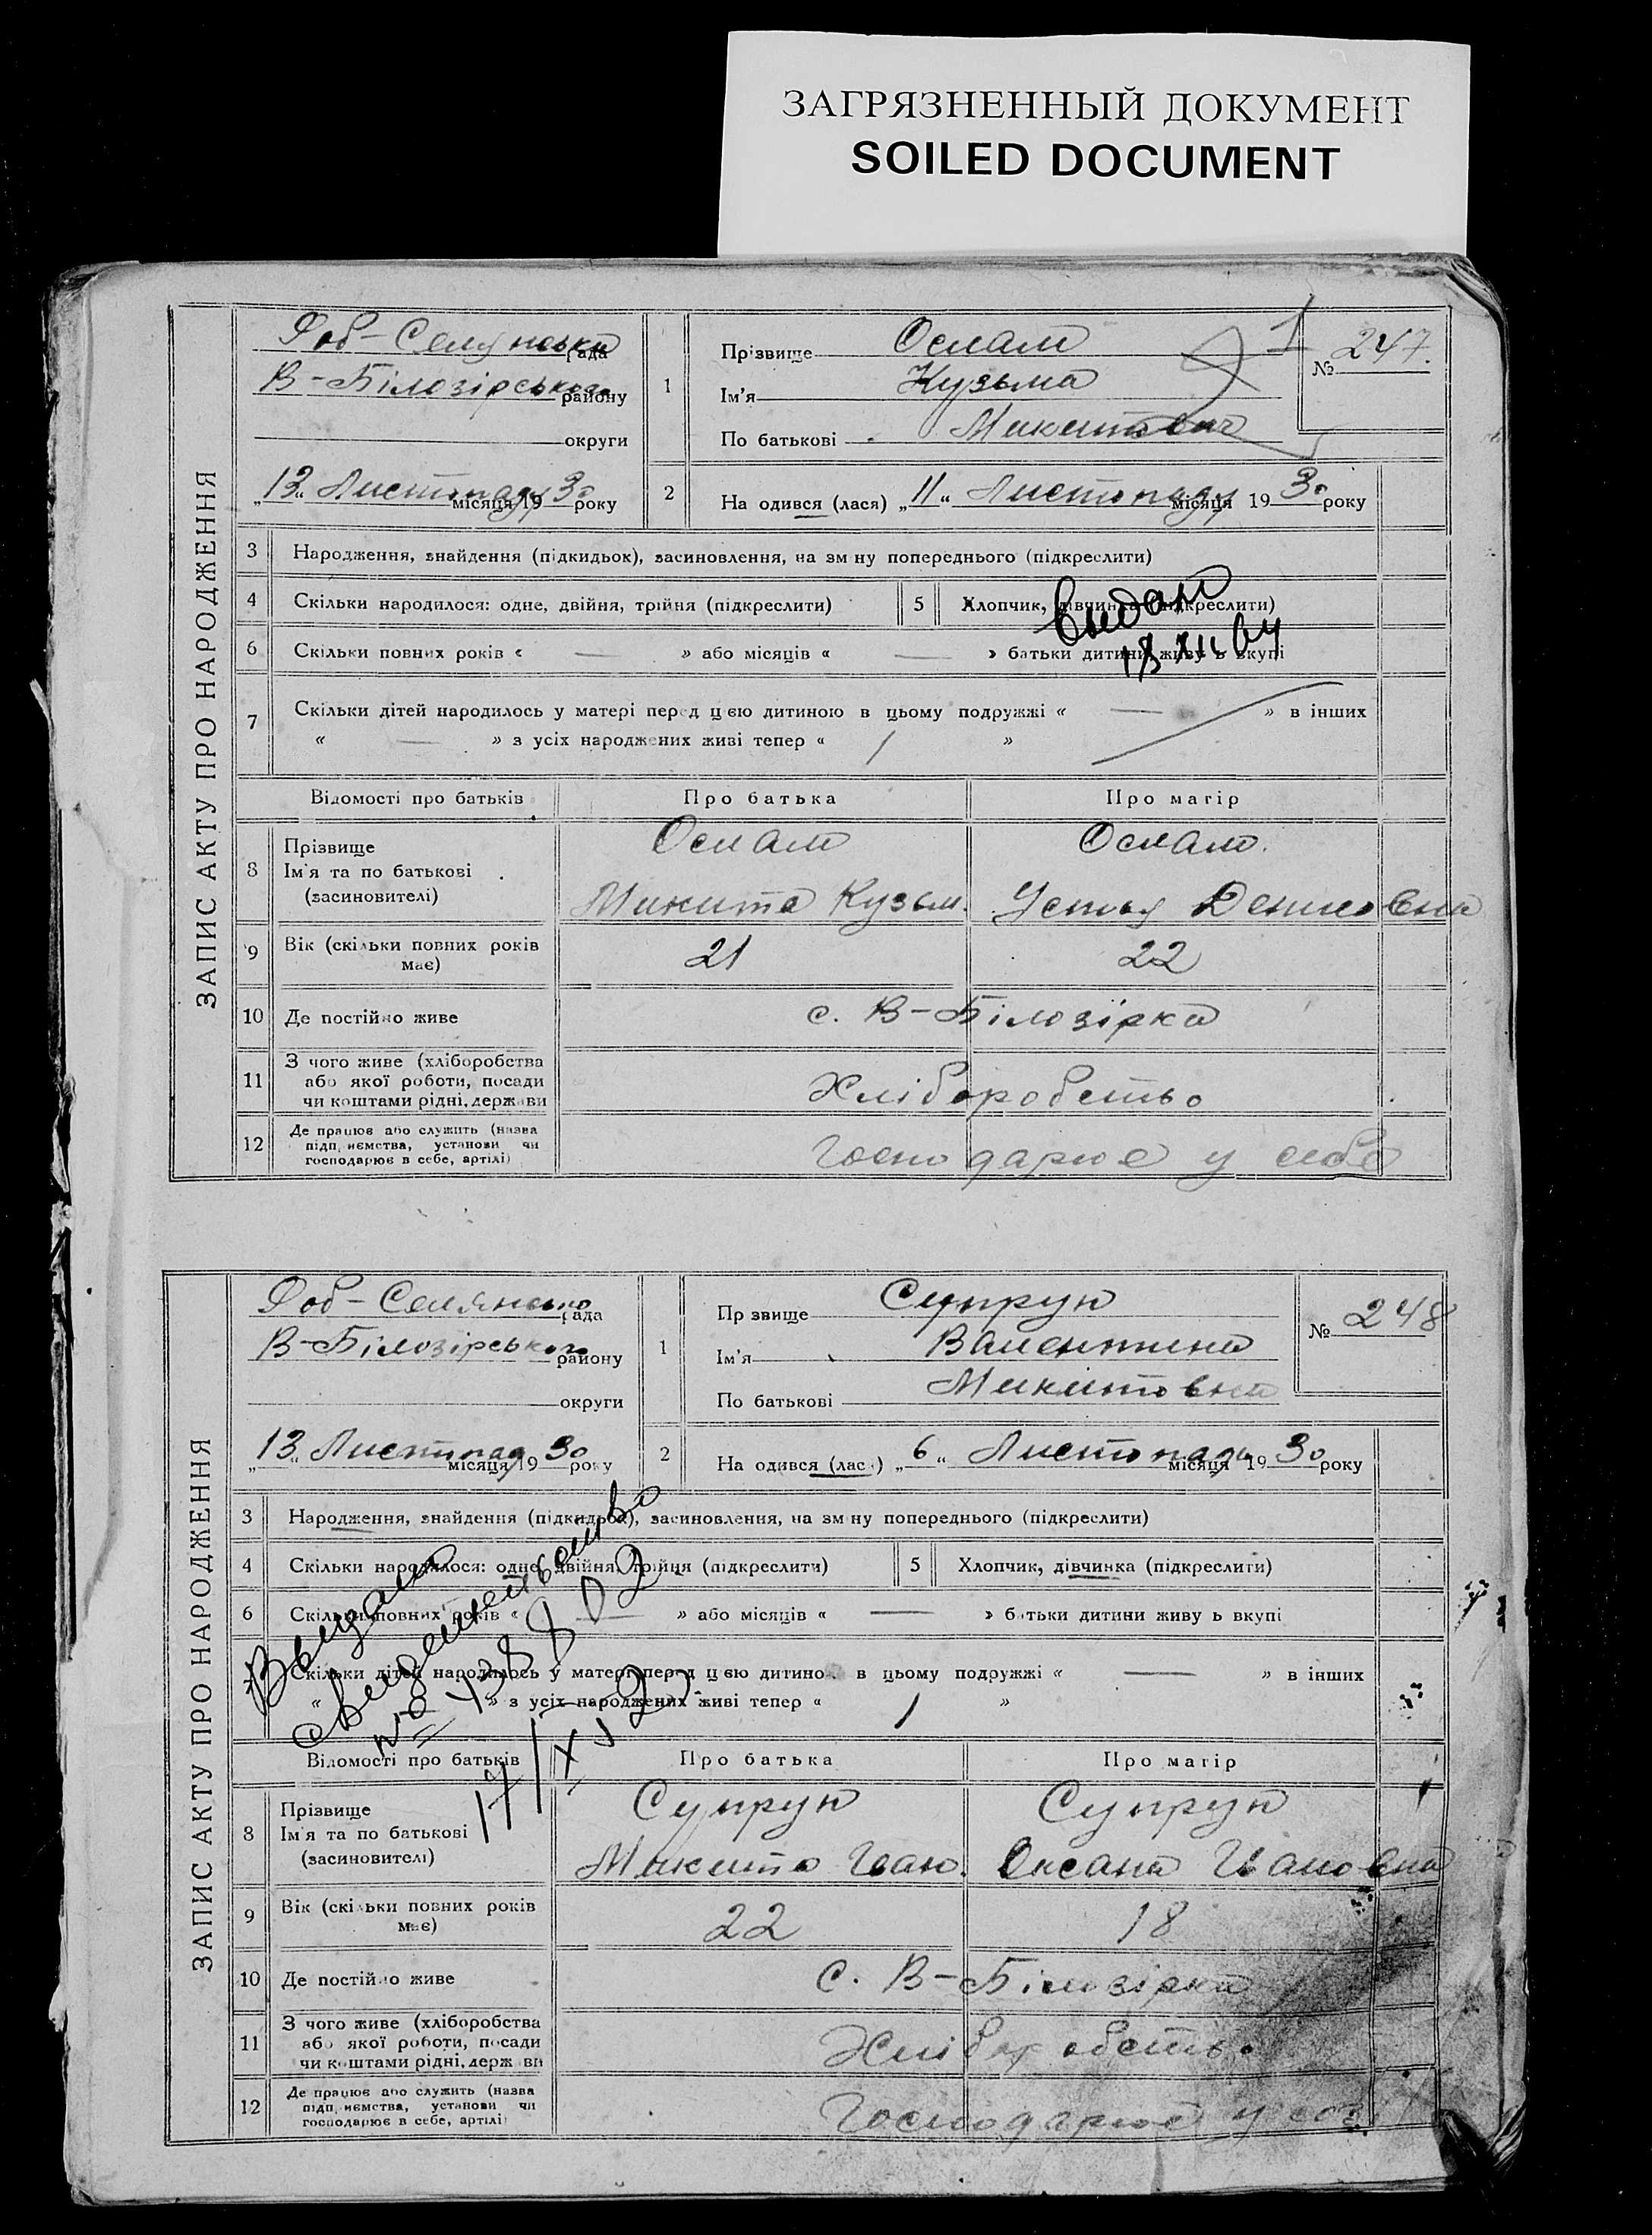 ЗАГРЯЗНЕННЫЙ ДОКУМЕНТ
SOILED DOCUMENT
ЗАПИС АКТУ ПРО НАРОДЖЕННЯ
Роб-Селянська рада
В-Білозірського району
округи
„13“ Листопаду місяця 1930 року
1
Прізвище Ослам
Ім'я Кузьма
По батькові Микитович
№ 247.
2
На одився (лася) „11“ Листопаду місяця 1930 року
3 Народження, знайдення (підкидьок), засиновлення, на зм ну попереднього (підкреслити)
4 Скільки народилося: одне, двійня, трійня (підкреслити)
5 Хлопчик, дівчинка (підкреслити)
Выдано
18 XII
6 Скільки повних років « — » або місяців « — » батьки дитини живу ь вкупі
7 Скільки дітей народилось у матері перед цією дитиною в цьому подружжі « — » в інших
« — » з усіх народжених живі тепер « 1 »
Відомості про батьків Про батька Про матір
8 Прізвище Ослам Ослам.
Ім'я та по батькові
(засиновителі) Микита Кузьм.
9 Вік (скільки повних років має) 21 22
10 Де постійно живе с. В-Білозірка
11 З чого живе (хліборобства
або якої роботи, посади
чи коштами рідні, держави Хліборобство
12 Де працює або служить (назва
підп иємства, установи чи
господарює в себе, артілі) Господарює у себе
ЗАПИС АКТУ ПРО НАРОДЖЕННЯ
Роб-Селянська рада
В-Білозірського району
округи
„13“ Листопад місяця 1930 року
1
Пр звище Супрун
Ім'я Валентина
По батькові Микитовна
№ 248
2
На одився (лася) „6“ Листопада місяця 1930 року
3 Народження, знайдення (підкидьок), засиновлення, на зм ну попереднього (підкреслити)
4 Скільки народилося: одне, двійня, трійня (підкреслити)
5 Хлопчик, дівчинка (підкреслити)
6 Скільки повних років « — » або місяців « — » батьки дитини живу ь вкупі
Скільки дітей народилось у матері перед цією дитиною в цьому подружжі « — » в інших
« » з усіх народжених живі тепер « 1 »
Выдано
свидетельство
№
17/XI
Відомості про батьків Про батька Про матір
8 Прізвище Супрун Супрун
Ім'я та по батькові
(засиновителі) Микита Іван. Оксана Івановна
9 Вік (скільки повних років має) 22 18
10 Де постійно живе с. В-Білозірка
11 З чого живе (хліборобства
або якої роботи, посади
чи коштами рідні, держ ви Хліборобство
12 Де працює або служить (назва
підп иємства, установи чи
господарює в себе, артілі) Господарює у